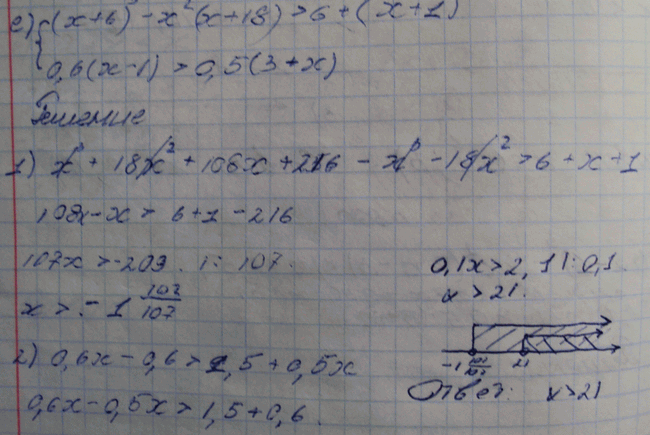 е) { (x+6)³ - x²(x+18) > 6 + (x+1)
0,6(x-1) > 0,5(3+x)
Решение
1) x³ + 18x² + 108x + 216 - x³ - 18x² > 6 + x + 1
108x - x > 6+1-216
107x > -209. |: 107.
x > -1 102/107
2) 0,6x - 0,6 > 1,5 + 0,5x
0,6x - 0,5x > 1,5 + 0,6.
0,1x > 2,1 |: 0,1.
x > 21.
-1 102/107 21
Ответ: x > 21